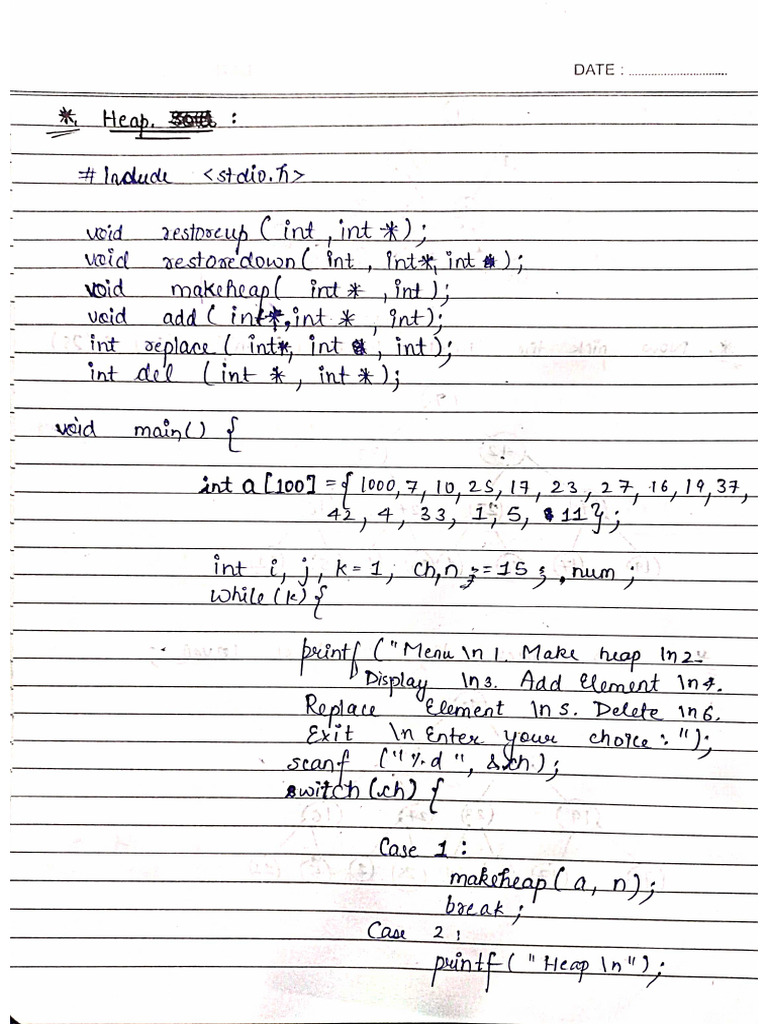 DATE : ..............................
*. Heap. :
# Include <stdio.h>
void restoreup ( int , int *);
void restoredown ( int , int*, int );
void makeheap( int * , int );
void add ( int*, int * , int);
int replace ( int*, int , int);
int del ( int * , int *);
void main() {
int a [100] = { 1000, 7, 10, 25, 17, 23, 27, 16, 19, 37,
42, 4, 33, 1, 5, 11};
int i, j, k = 1, ch, n = 15 , num ;
while (k) {
printf ("Menu \n 1. Make heap \n 2.
Display \n 3. Add Element \n 4.
Replace Element \n 5. Delete \n 6.
Exit \n Enter your choice : ");
scanf ("%d ", &ch);
switch (ch) {
Case 1 :
makeheap( a, n);
break ;
Case 2 :
printf ( " Heap \n");